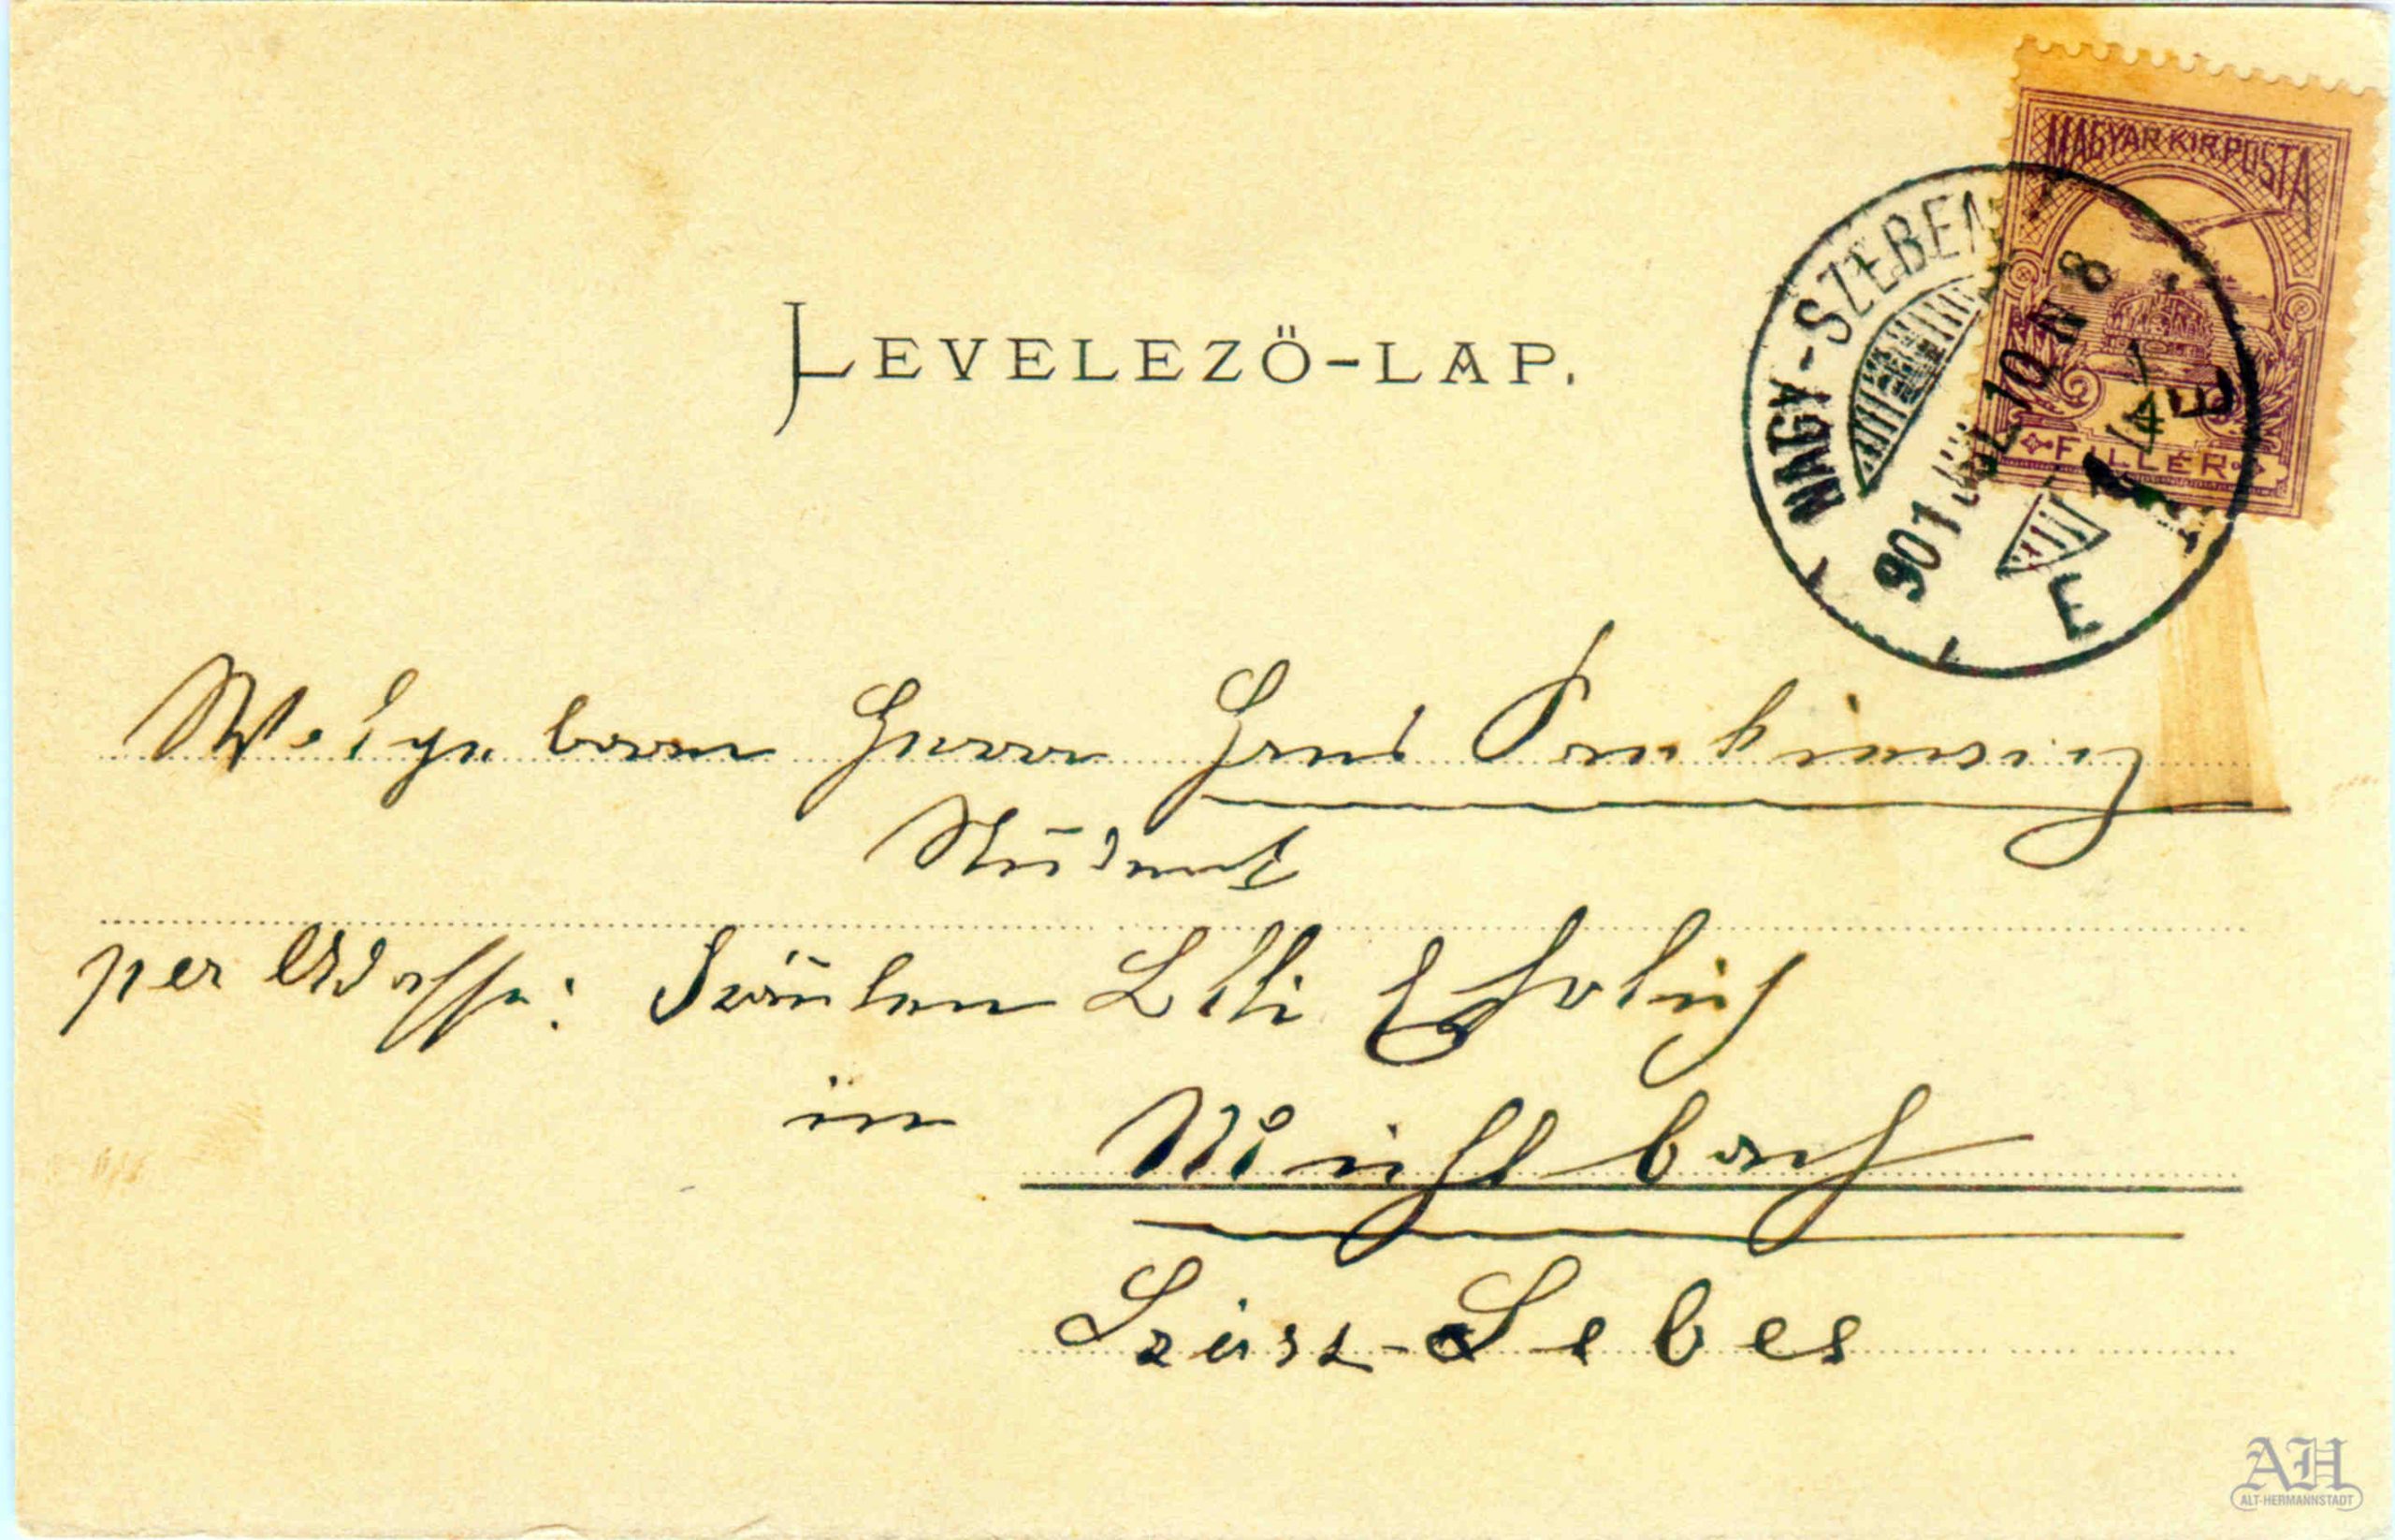 MAGYAR KIR. POSTA
NAGY-SZEBEN
901 JUL 10 N 8
FILLÉR
LEVELEZÖ-LAP.
Wolgeboren Herrn Hans
Student
per Adresse: Fräulein Lilli Ehrlich
in Mühlbach
Szász-Sebes
AH
ALT-HERMANNSTADT